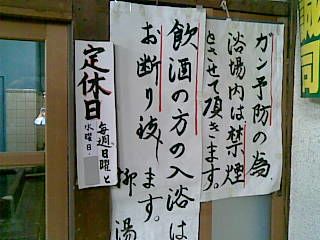 ガン予防の為
浴場内は禁煙
とさせて頂きます。
飲酒の方の入浴は
お断り致します。
柳湯
定休日
毎週日曜と
水曜日。